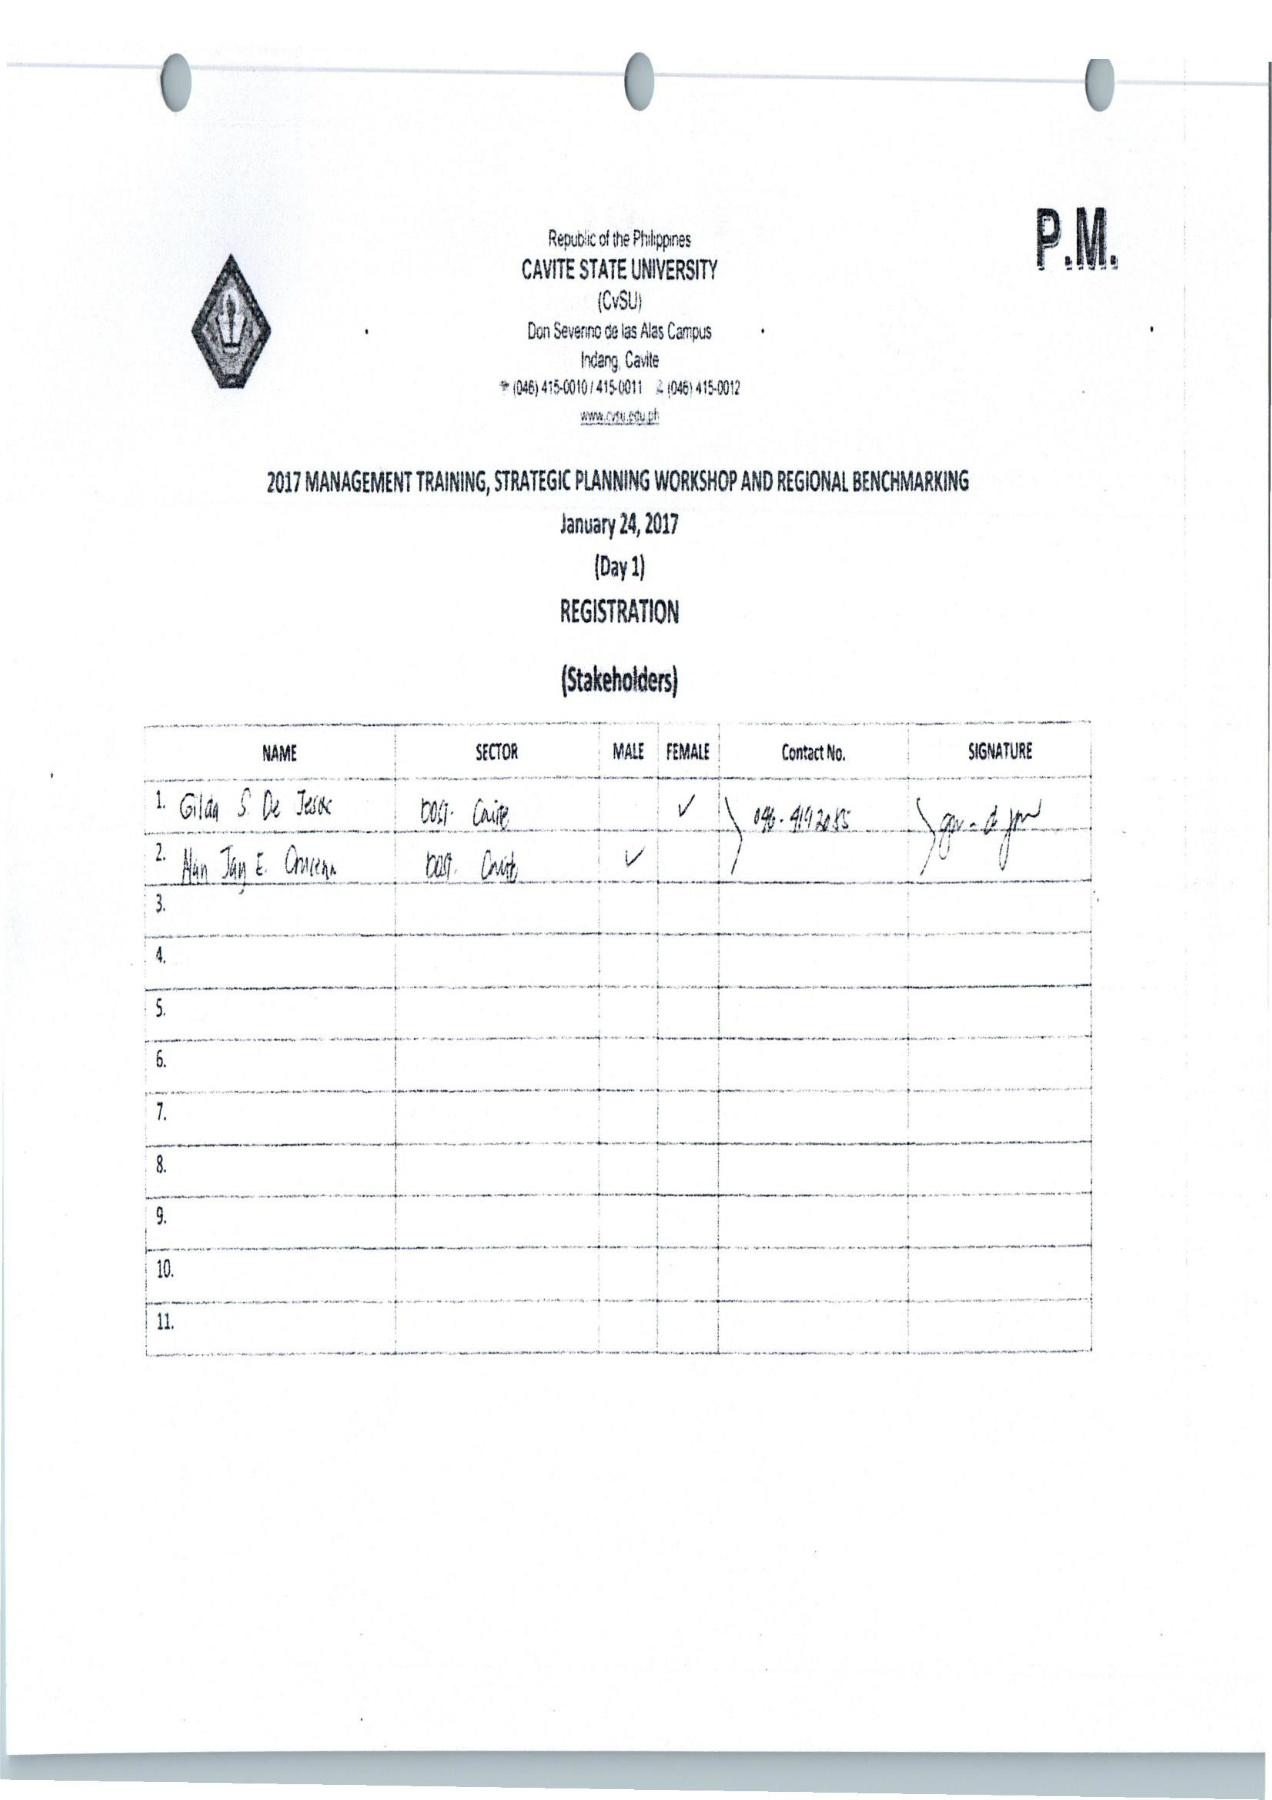 P.M.
Republic of the Philippines
CAVITE STATE UNIVERSITY
(CvSU)
Don Severino de las Alas Campus
Indang, Cavite
(046) 415-0010 / 415-0011 (046) 415-0012
www.cvsu.edu.ph
2017 MANAGEMENT TRAINING, STRATEGIC PLANNING WORKSHOP AND REGIONAL BENCHMARKING
January 24, 2017
(Day 1)
REGISTRATION
(Stakeholders)
NAME SECTOR MALE FEMALE Contact No. SIGNATURE
1. Gilda S. De Jesus DOST- Cavite ✓
2. Jay E. DOST- Cavite ✓
3.
4.
5.
6.
7.
8.
9.
10.
11.